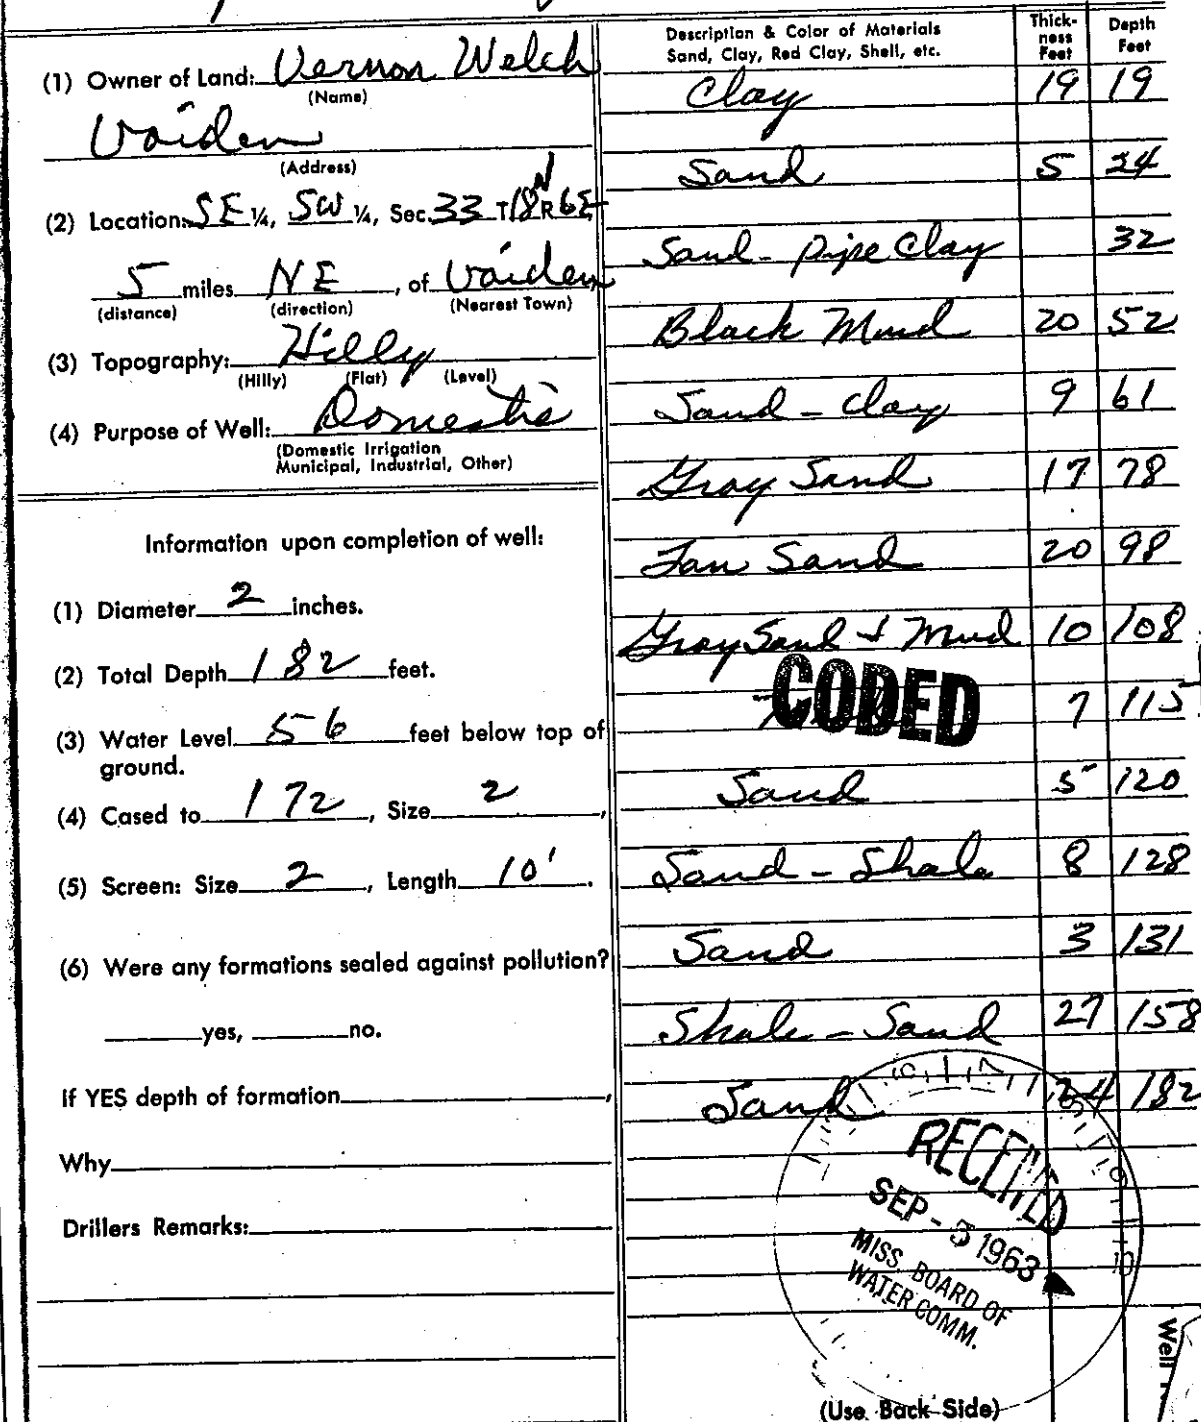 (1) Owner of Land: Vernon Welch
(Name)
Vaiden
(Address)
(2) Location: SE 1/4, SW 1/4, Sec. 33 T 18 N R 6E
5 miles NE, of Vaiden
(distance) (direction) (Nearest Town)
(3) Topography: Hilly
(Hilly) (Flat) (Level)
(4) Purpose of Well: Domestic
(Domestic Irrigation
Municipal, Industrial, Other)
Information upon completion of well:
(1) Diameter 2 inches.
(2) Total Depth 182 feet.
(3) Water Level 56 feet below top of
ground.
(4) Cased to 172, Size 2,
(5) Screen: Size 2, Length 10'.
(6) Were any formations sealed against pollution?
yes, no.
If YES depth of formation,
Why
Drillers Remarks:
Description & Color of Materials
Sand, Clay, Red Clay, Shell, etc.
Thick-
ness
Feet
Depth
Feet
Clay 19 19
Sand 5 24
Sand - pipe Clay 32
Black Mud 20 52
Sand - Clay 9 61
Gray Sand 17 78
Tan Sand 20 98
Gray Sand & Mud 10 108
CODED 7 115
Sand 5 120
Sand - Shale 8 128
Sand 3 131
Shale - Sand 27 158
Sand 24 182
RECEIVED
SEP - 5 1963
MISS. BOARD OF
WATER COMM.
Well
(Use Back Side)